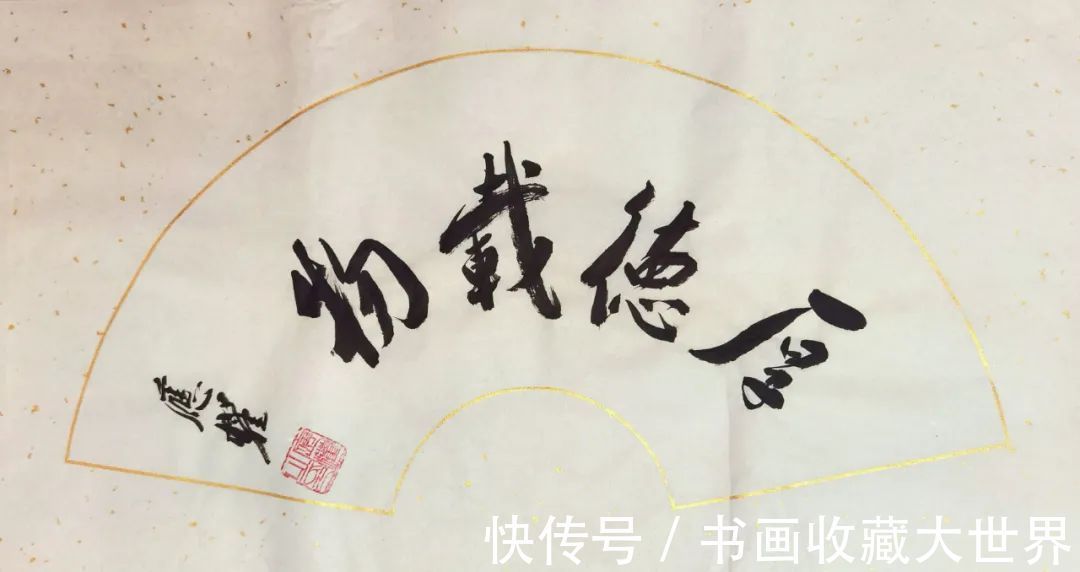 厚德載物
應舉
快传号 / 书画收藏大世界